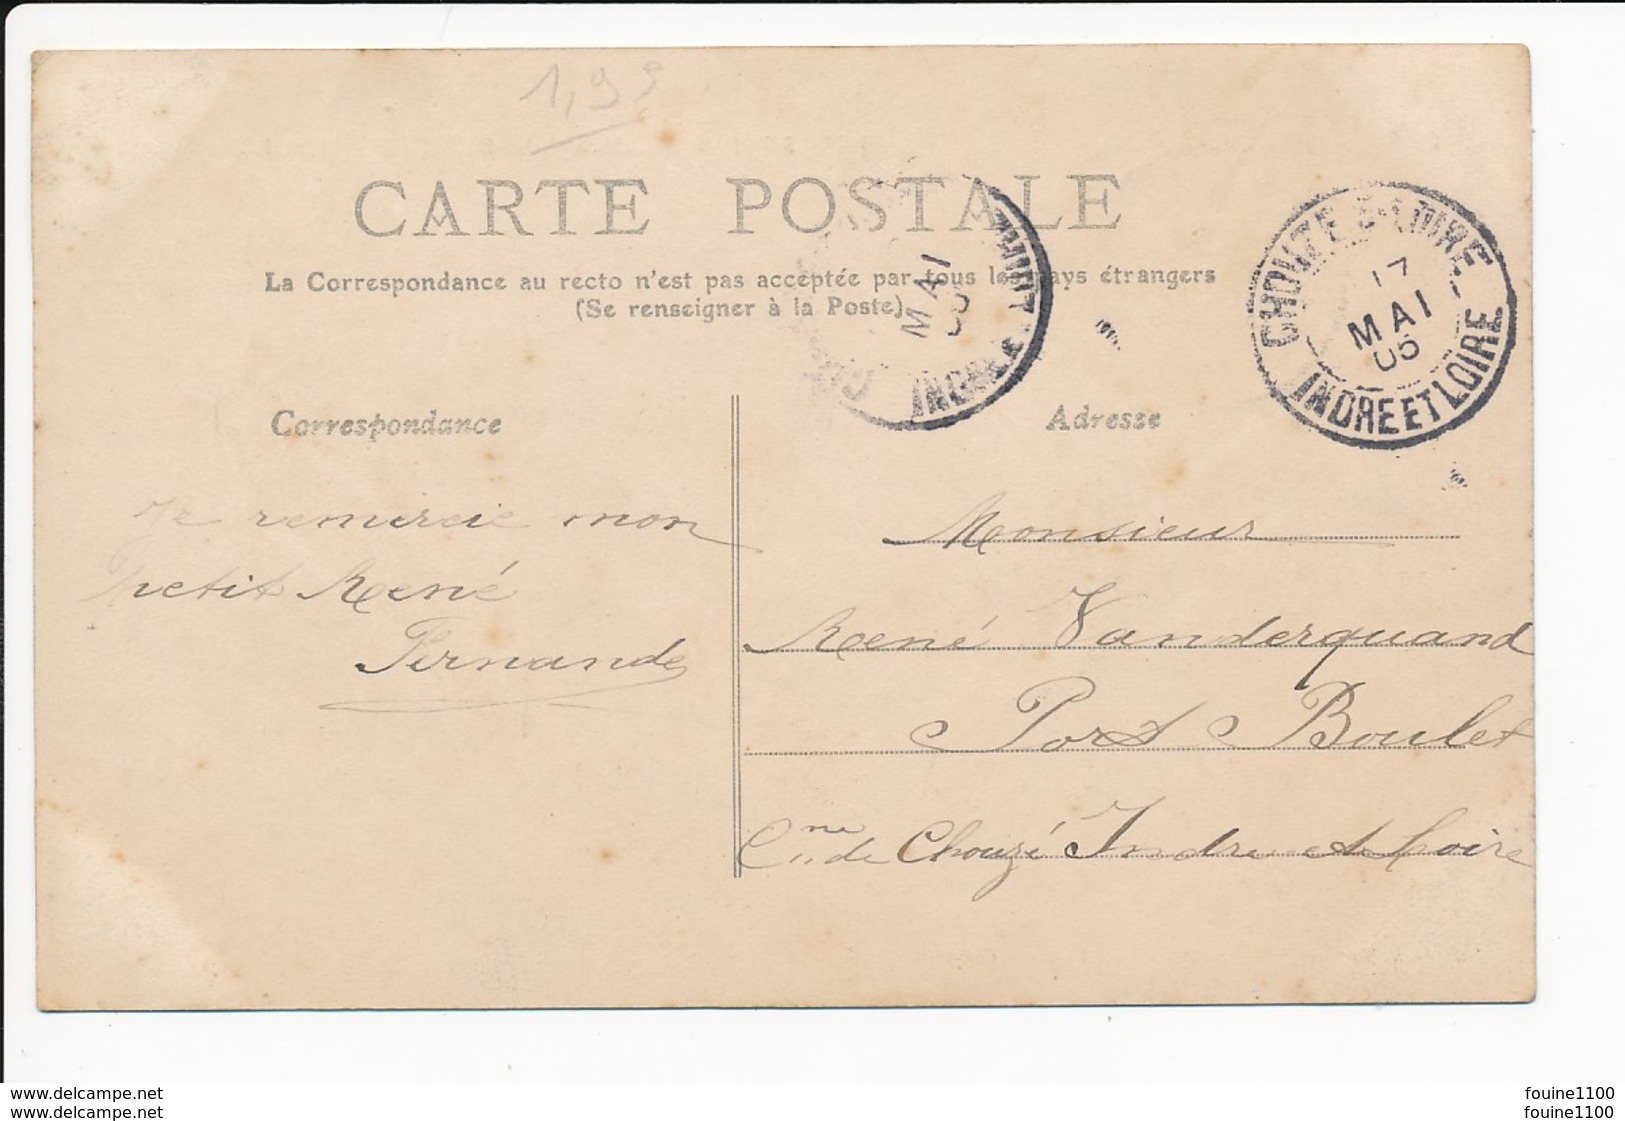 1,99
CARTE POSTALE
La Correspondance au recto n'est pas acceptée par tous les pays étrangers
(Se renseigner à la Poste)
MAI
INDRE
CHOUZE S-LOIRE
17
MAI
05
INDRE ET LOIRE
Correspondance
Adresse
Je remercie mon
petit René
Fernande
Monsieur
René Vanderquand
Port Boulet
Cne de Chouzé Indre et Loire
delcampe.net
delcampe.net
fouine1100
fouine1100